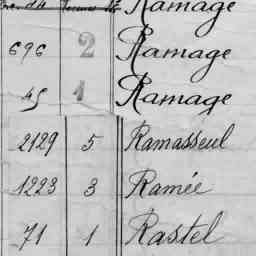 Ramage
696 2 Ramage
45 1 Ramage
2129 5 Ramasseul
1223 3 Ramée
71 1 Rastel